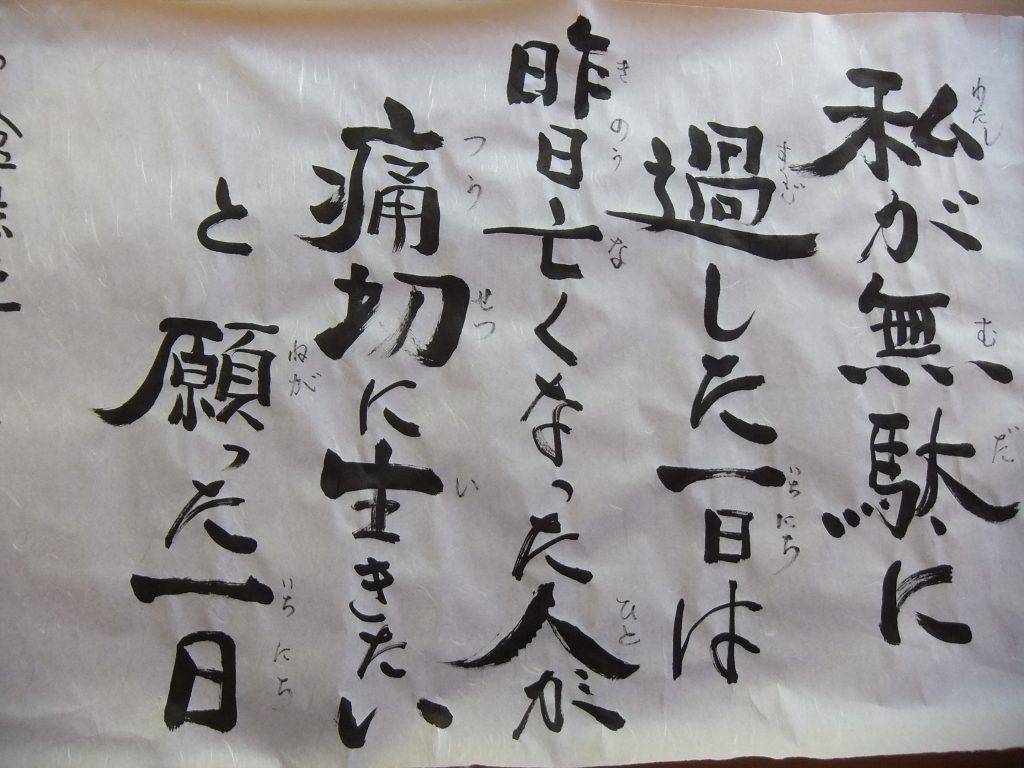 私が無駄に
過した一日は
昨日亡くなった人が
痛切に生きたい
と願った一日
わたし
む
だ
すごむ
いちにち
きのう
な
ひと
つう
せつ
い
ねが
いちにち